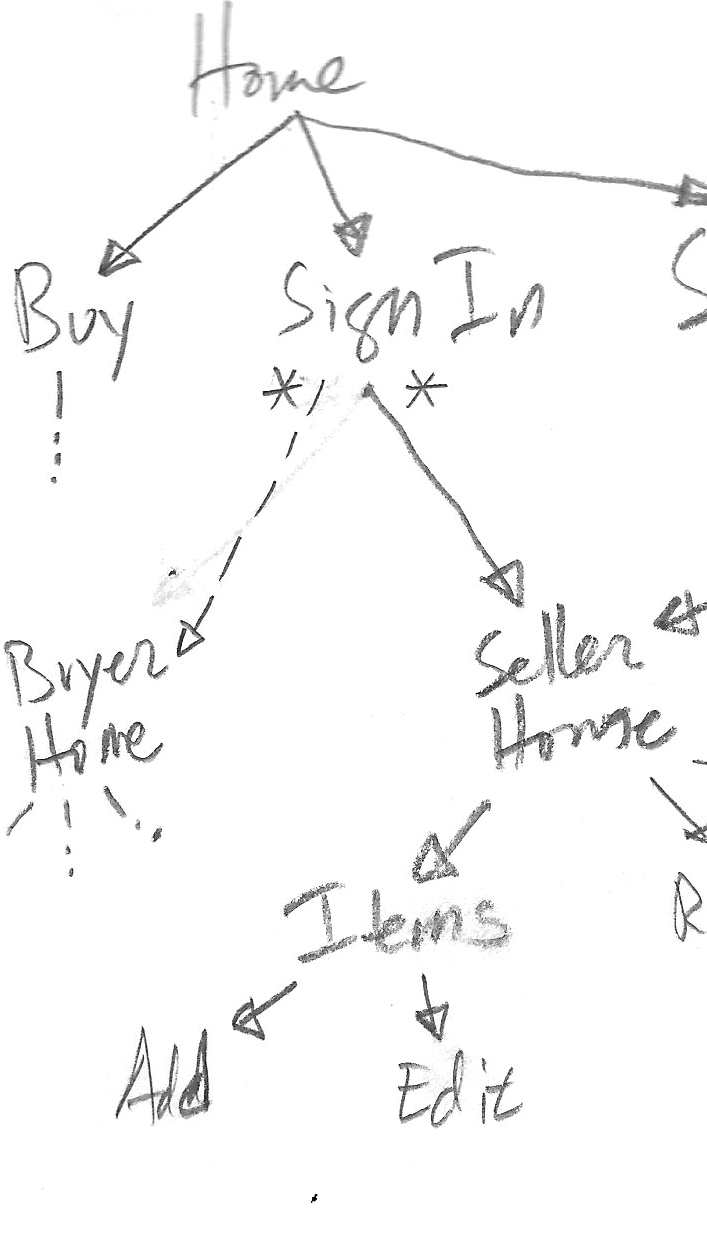 Home
Buy
Sign In
S
* *
Buyer
Home
Seller
Home
R
Items
Add
Edit